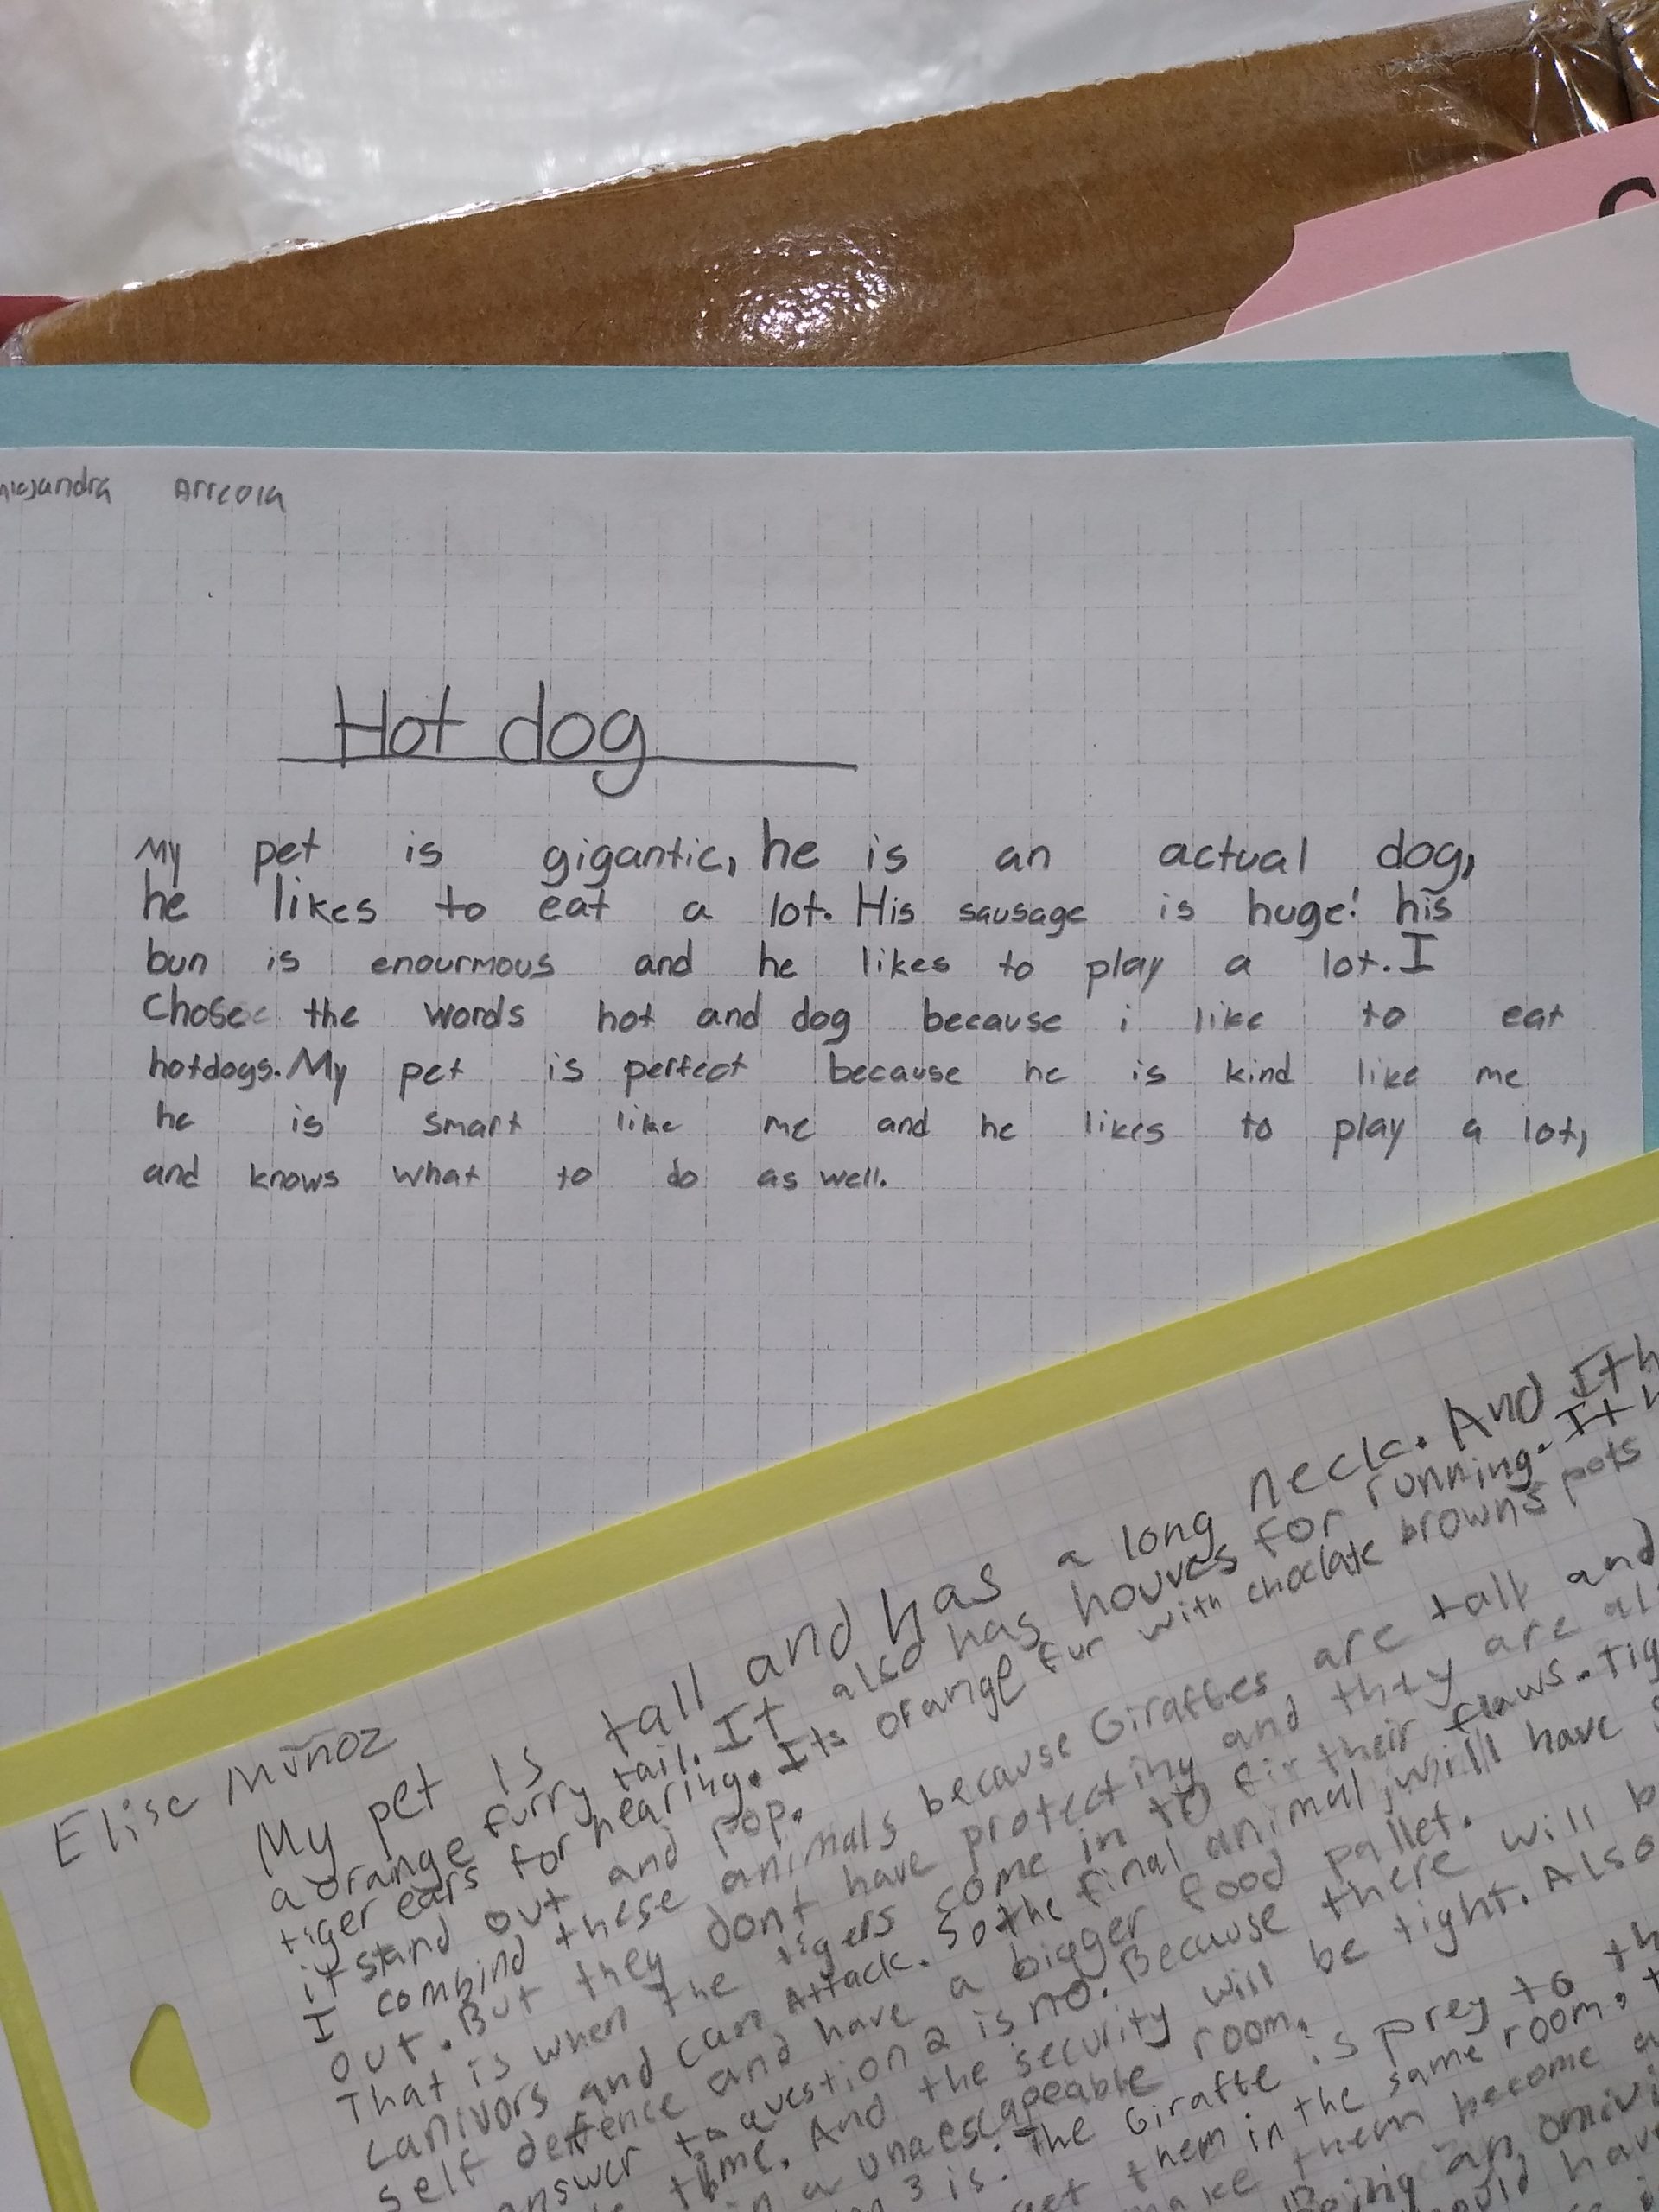 Arreola
Hot dog
My pet is gigantic, he is an actual dog,
he likes to eat a lot. His sausage is huge! his
bun is enourmous and he likes to play a lot. I
chose the words hot and dog because i like to eat
hotdogs. My pet is perfect because he is kind like me
he is smart like me and he likes to play a lot,
and knows what to do as well.
Elise Muñoz
My pet is tall and has a long neck. And It
a orange furry tail. It also has houves for running. It
tiger ears for hearing. Its orange fur with choclate browns pots
it stand out and pop.
I combind these animals because Giraffes are tall and
out. But they dont have protecting and they are
That is when the tigers come in to their flaws.
canivors and can Attack. So the final animal will have
self deffence and have a bigger food pallet.
answer to question 2 is no. Because there will
time. And the security will be tight. Also
a unaescapeable room.
3 is: The Giraffe is prey to
them in the same room,
make them become
Being an
have